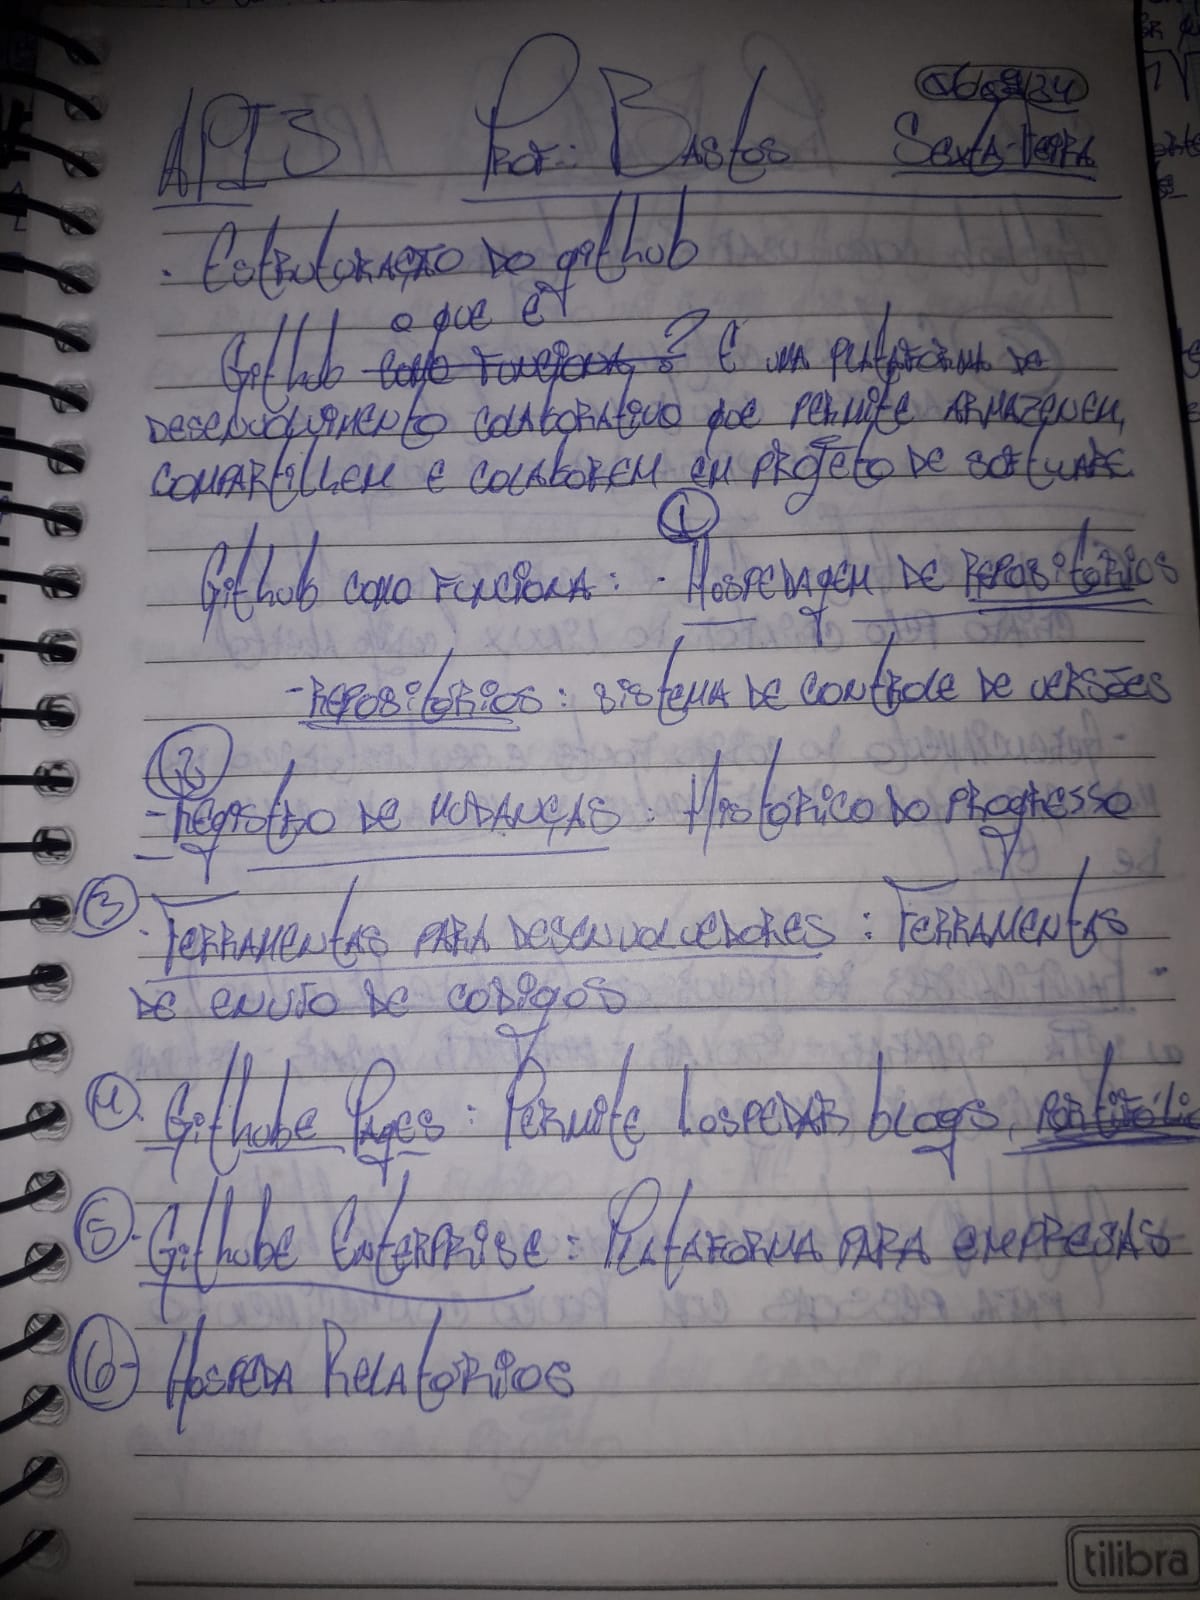 API 3 Prof.: Bastos Sexta-Ferra
. Estruturação do github
o que é
Github como funciona ? É uma plataforma de
desenvolvimento colaborativo que permite armazenem,
compartilhem e colaborem em projeto de software
①
Github como funciona: - Hospedagem de Repositórios
- Repositórios: sistema de controle de versões
②
- Registro de mudanças: Histórico do progresso
③ . Ferramentas para desenvolvedores: Ferramentas
de envio de codigos
④. Githube Pages: Permite hospedar blogs,
⑤. Githube Enterprise: Plataforma para empresas
⑥- Hospeda Relatórios
tilibra